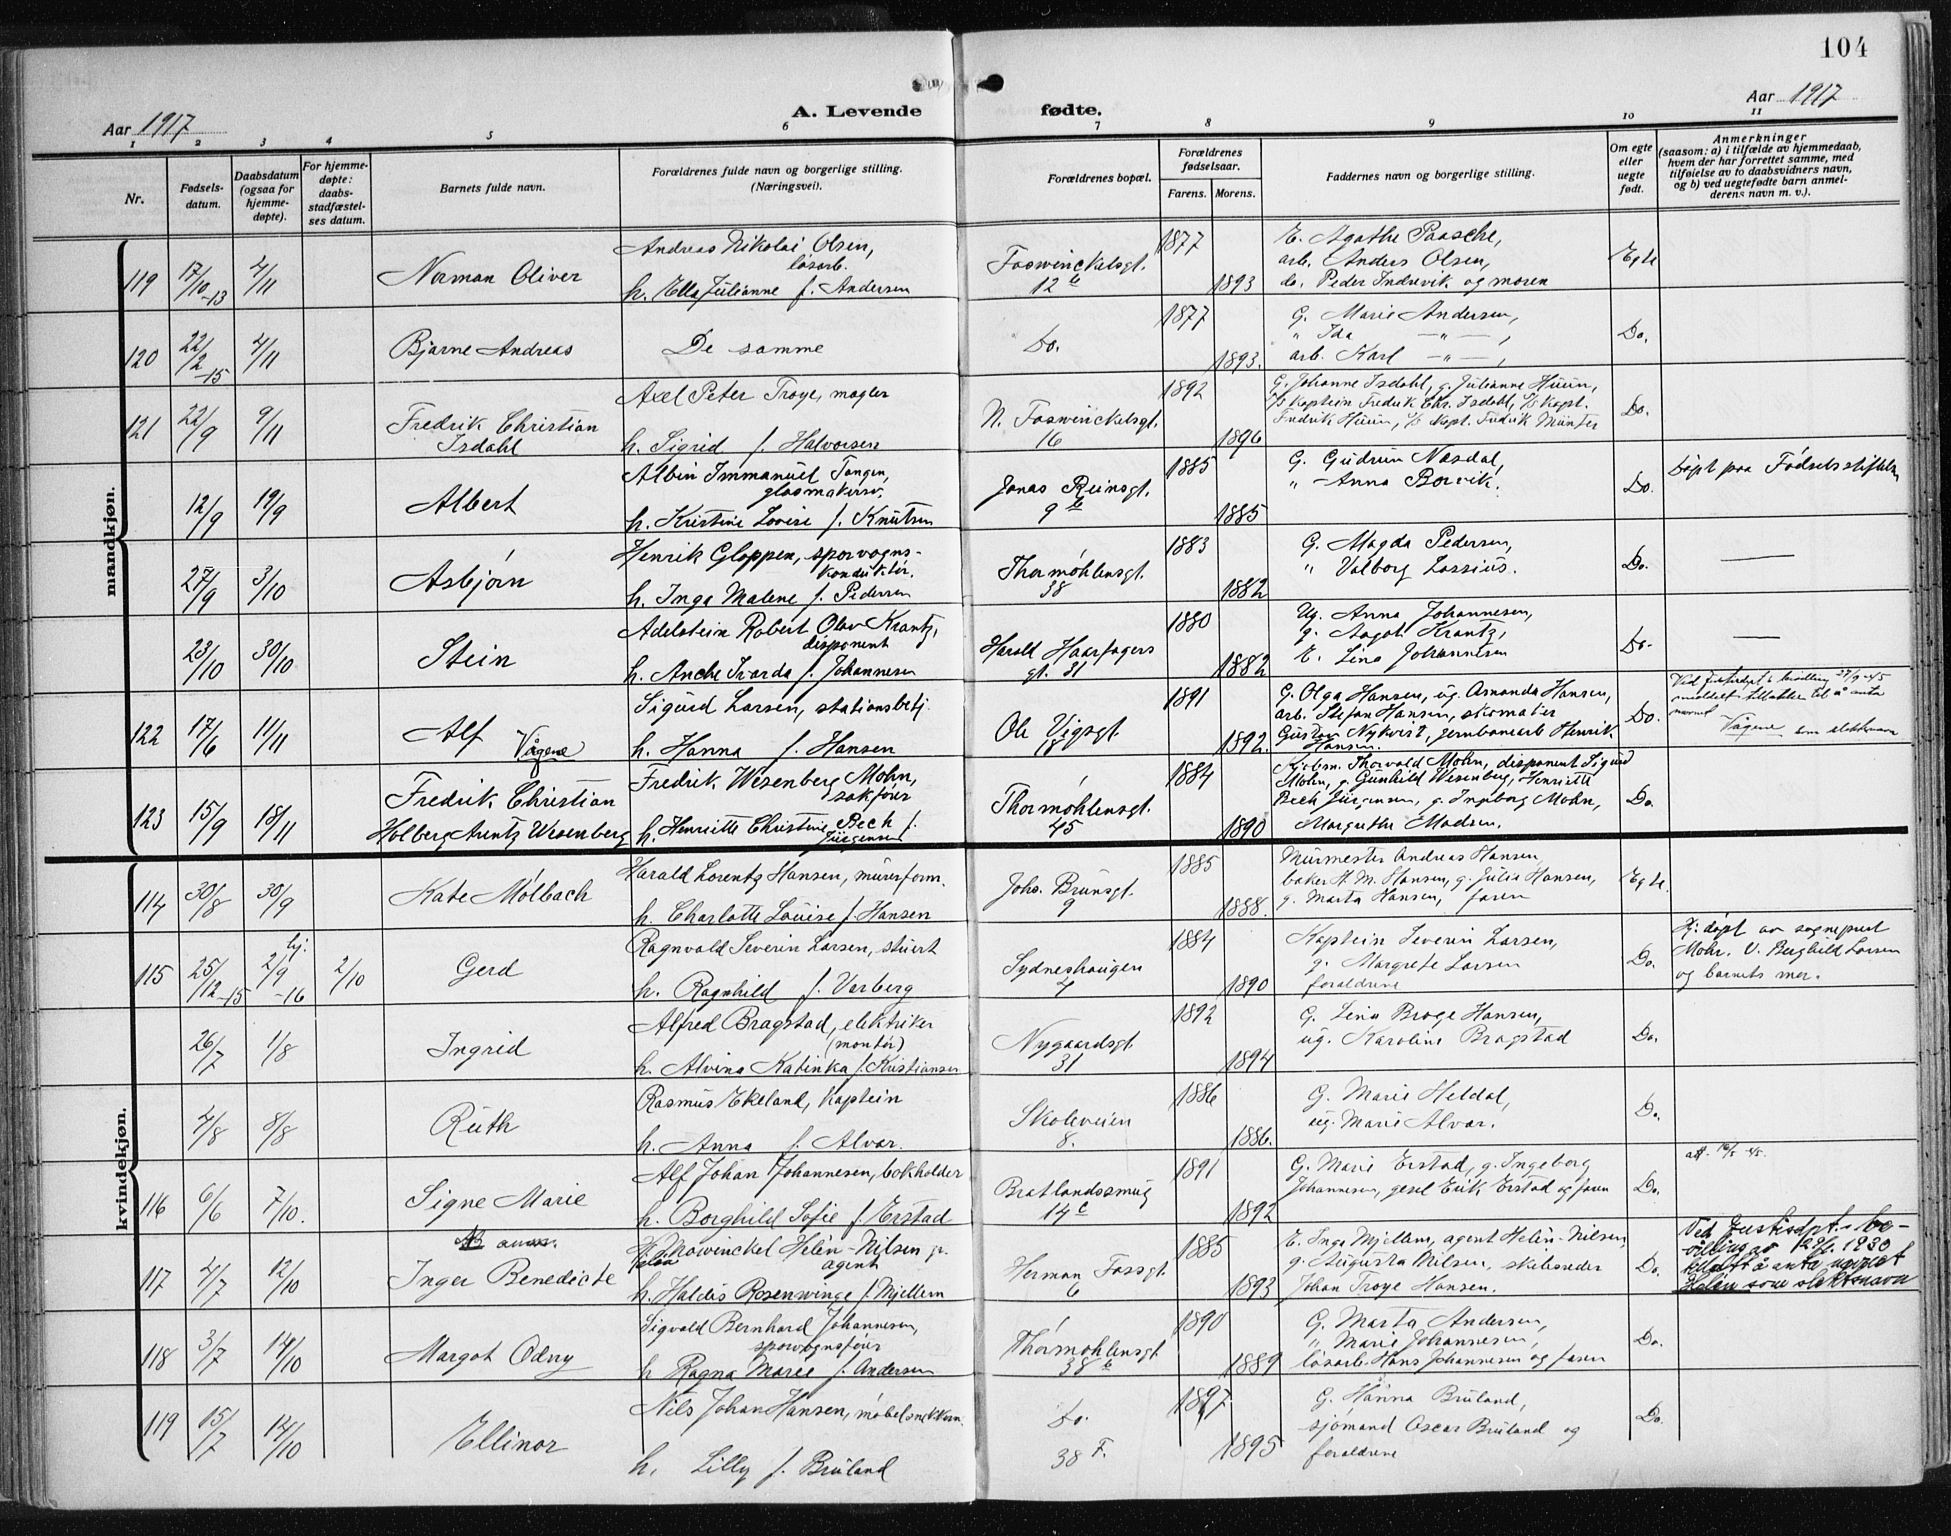 104
Aar 1917
A. Levende fødte.
Aar 1917
1 2 3 4 5 6 7 8 9 10 11
Nr.
Fødsels-
datum.
Daabsdatum
(ogsaa for
hjemme-
døpte).
For hjemme-
døpte:
daabs-
stadfæstel-
ses datum.
Barnets fulde navn.
Forældrenes fulde navn og borgerlige stilling.
(Næringsvei).
Forældrenes bopæl.
Forældrenes
fødselsaar.
Farens. Morens.
Faddernes navn og borgerlige stilling.
Om egte
eller
uegte
født.
Anmerkninger
(saasom: a) i tilfælde av hjemmedaab,
hvem der har forrettet samme, med
tilføielse av to daabsvidners navn,
og b) ved uegtefødte barn anmel-
derens navn m. v.).
mandkjøn.
119 17/10-13 4/11 Norman Oliver
Andreas Nikolai Olsen,
løsarb.
h. Ella Julianne f. Andersen
Foswinckelsgt.
12 b
1877 1893
E. Agathe Paasche,
arb. Anders Olsen,
do. Peder Indrevik og moren
Egte
120 22/2-15 4/11 Bjarne Andreas
De samme
Do.
1877 1893.
G. Marie Andersen,
" Ida — " — ,
arb. Karl — " — ,
Do.
121 22/9 9/11 Fredrik Christian
Isdahl
Axel Peter Troye, mægler
h. Sigrid f. Halvorsen
N. Foswinckelsgt.
16
1892 1896
G. Johanne Isdahl, g. Julianne Huun,
Kaptein Fredrik Chr. Isdahl, Kapt.
Fredrik Huun, Kapt. Fredrik Münter
Do.
12/9 19/9 Albert
Albin Immanuel Tangen,
glasmakersv.
h. Kristine Lovise f. Knutsen
Jonas Reinsgt.
9 b
1885 1885
G. Gudrun Næsdal,
" Anna Borvik.
Do.
Døpt paa Fødselsstiftelsen
27/9 3/10 Asbjørn
Henrik Gloppen, sporvogns-
konduktør.
h. Inga Malene f. Pedersen
Thormøhlensgt.
38
1883 1882
G. Magda Pedersen,
" Valborg Lossius.
Do. —
23/10 30/10 Stein
Adelstein Robert Olav Krantz,
disponent
h. Anche Ivarda f. Johannesen
Harald Haarfagers
gt. 31
1880 1882
Ug. Anna Johannesen,
g. Aagot Krantz,
E. Lina Johannesen
Do. —
122 17/6 11/11 Alf Vågenæ
Sigurd Larsen, stationsbetj.
h. Hanna f. Hansen
Ole Vigsgt.
18
1891 1892.
G. Olga Hansen, ug. Amanda Hansen,
arb. Stefan Hansen, skomaker
Gustav Nykvist, jernbanearb Henrik
Hansen.
Do.
Vågenæ som slektsnavn
123 15/9 18/11 Fredrik Christian
Holberg Arentz Wesenberg
Fredrik Wesenberg Mohn,
sakfører
h. Henriette Christine Beck f.
Jürgensen
Thormøhlensgt.
45
1884 1890
Kjøbm. Thorvald Mohn, disponent Sigurd
Mohn, g. Gunhild Wesenberg, Henriette
Beck Jürgensen, g. Ingeborg Mohn,
Margrethe Madsen.
Do.
kvindekjøn.
114 30/8 30/9 Kate Mølbach
Harald Lorentz Hansen, murerform.
h. Charlotte Louise f. Hansen
Johs. Brunsgt.
9
1885 1888.
Murmester Andreas Hansen,
baker H. M. Hansen, g. Julia Hansen,
g. Marta Hansen, faren
Egte.
115 25/12-15 hj. 2/9-16 2/10 Gerd
Ragnvald Severin Larsen, stuert
h. Ragnhild f. Varberg
Sydneshaugen
4
1884 1890
Kaptein Severin Larsen,
g. Margrete Larsen
forældrene
Do.
Hj. døpt av sogneprest
Mohr. V. Berghild Larsen
og barnets mor.
26/7 1/8 Ingrid
Alfred Bragstad, elektriker
(montør)
h. Alvina Katinka f. Kristiansen
Nygaardsgt.
31
1892 1894
G. Lina Broge Hansen,
ug. Karoline Bragstad
Do.
4/8 8/8 Ruth
Rasmus Ekeland, kaptein
h. Anna f. Alvær.
Skoleveien
8.
1886 1886.
G. Marie Heldal,
ug. Marie Alvær.
Do.
116 6/6 7/10. Signe Marie
Alf Johan Johannesen, bokholder
h. Borghild Sofie f. Erstad
Bratlandssmug
14 c
1891 1892
G. Marie Erstad, g. Ingeborg
Johannesen, gesel Erik Erstad og faren
Do.
117 4/7 12/10 Inger Benedicte
Mowinckel Helén-Nilsen jr.
agent
h. Haldis Rosenwinge f. Mjellem
Herman Fossgt.
6
1885 1893
E. Inga Mjellem, agent Helén-Nilsen,
g. Augusta Nilsen, skibsreder
Johan Troye Hansen.
Do.
Ved Justisdpt.s be-
villing av 1930
tillatt å anta navnet
Helén som slektsnavn
118 3/7 14/10 Margot Odny
Sigvald Bernhard Johannesen,
sporvognsfører
h. Ragna Marie f. Andersen
Thormøhlensgt.
38 b
1890 1889
G. Marta Andersen,
" Marie Johannesen,
løsarb. Hans Johannesen og faren
Do.
119 15/7 14/10 Ellinor
Nils Johan Hansen, møbelsnekker.
h. Lilly f. Bruland
Do.
38 F.
1897 1895
G. Hanna Bruland,
sjømand Oscar Bruland og
forældrene
Do.